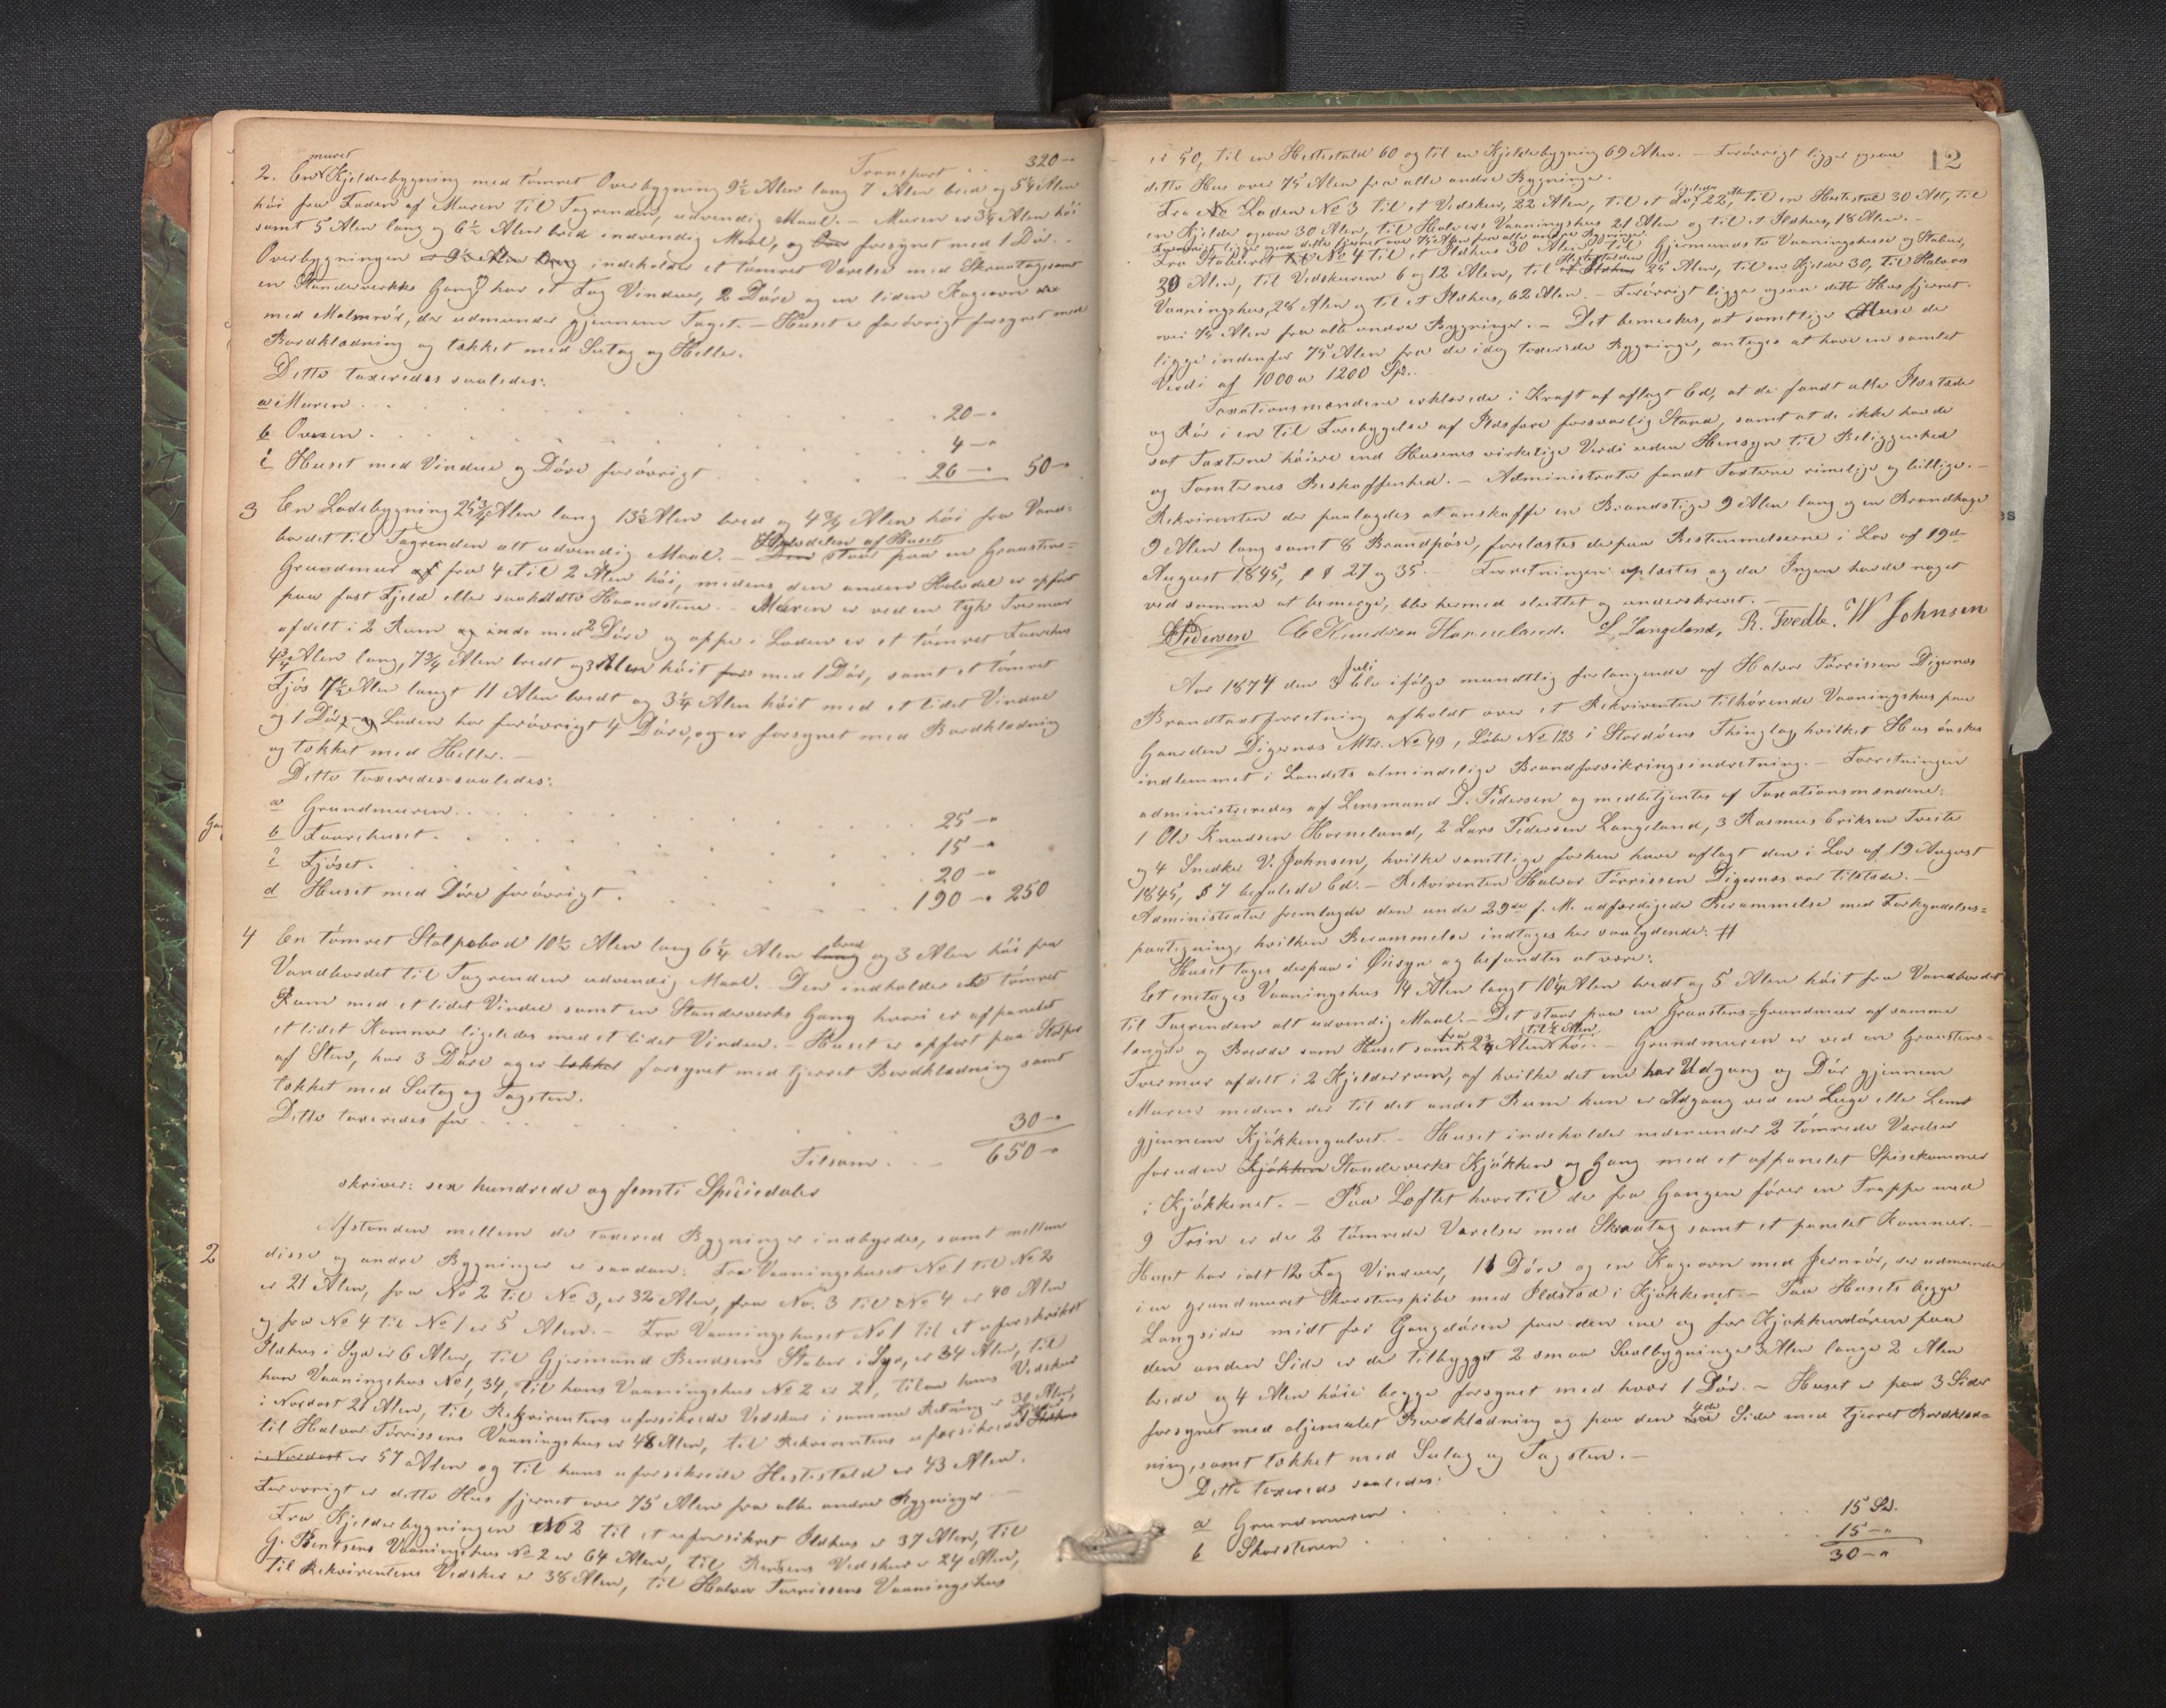 Transport . . 320 –"
2. En muret Kjelderbygning med tømret Overbygning 9½ Alen lang 7 Alen bred og 5¼ Alen
høi fra Foden af Muren til Tagrenden, udvendig Maal. – Muren er 3¼ Alen høi
samt 5 Alen lang og 6½ Alen bred indvendig Maal, og forsynet med 1 Dør. –
Overbygningen indeholder et tømret Værelse med Skraatag, samt
en Standerverks Gang, har et Fag Vinduer, 2 Døre og en liden Kogeovn
med Malmrør, der udmunder gjennem Taget. – Huset er forøvrigt forsynet med
Bordklædning og tækket med Sutag og Heller.
Dette taxeredes saaledes:
a Muren . . . 20 –"
b Ovnen . . . 4 –"
c Huset med Vindue og Døre forøvrigt . . . 26 –" 50 –"
3 En Ladebygning 25¾ Alen lang 13½ Alen bred og 4¾ Alen høi fra Vand-
bordet til Tagrenden alt udvendig Maal. – Halvdelen af Huset staar paa en Graastens-
Grundmur af fra 4 til 2 Alen høi, medens den anden Halvdel er opført
paa fast Fjeld eller saakaldte Haandstene. – Muren er ved en tyk Tvermur
afdelt i 2 Rum og inde med 2 Døre og oppe i Laden er et tømret Faarehus
4¾ Alen lang, 7¾ Alen bredt og 3 Alen høit med 1 Dør, samt et tømret
Fjøs 17½ Alen langt 11 Alen bredt og 3¼ Alen høit med et lidet Vindue
og 1 Dør, – Laden har forøvrigt 4 Døre, og er forsynet med Bordklædning
og tækket med Heller. –
Dette taxeredes saaledes:
a Grundmuren . . . 25 –"
b Faarehuset . . . 15 –"
c Fjøset . . . 20 –"
d Huset med Døre forøvrigt . . . 190 –" 250
4 En tømret Stolpebod 10½ Alen lang 6¼ Alen bred og 3 Alen høi fra
Vandbordet til Tagrenden udvendig Maal. Den indeholder et tømret
Rum med et lidet Vindue samt en Standerverks Gang hvori er afpanelet
et lidet Kammer ligeledes med et lidet Vindue. – Huset er opført paa Stolper
af Sten, har 3 Døre og er forsynet med tjærret Bordklædning samt
tækket med Sutag og Tagsten.
Dette taxeredes for . . . 30 –"
Tilsam. . . – 650 –"
skriver: sex hundrede og femti Speciedaler
Afstanden mellem de taxered Bygninger indbyrdes, samt mellem
2 disse og andre Bygninger er saadan: Fra Vaaningshuset No 1 til No 2
er 21 Alen, fra No 2 til No 3, er 32 Alen, fra No. 3 til No 4 er 40 Alen
og fra No 4 til No 1 er 5 Alen. – Fra Vaaningshuset No 1 til et uforsikret
Ildhus i Syd er 6 Alen, til Gjermund Bendsens Stabur i Syd, er 34 Alen, til
hans Vaaningshus No 1, 34, til hans Vaaningshus No 2 er 21, til hans Vedskur
i Nordost 21 Alen, til Rekvirentens uforsikrede Vedskur i samme Retning er 30 Alen,
til Halvor Tørrissens Vaaningshus er 48 Alen, til Rekvirentens uforsikrede Kjelder
er 57 Alen og til hans uforsikrede Hestestald er 43 Alen.
Forøvrigt er dette Hus fjernet over 75 Alen fra alle andre Bygninger. –
Fra Kjelderbygningen No 2 til et uforsikret Ildhus er 37 Alen, til
G. Bentsens Vaaningshus No 2 er 64 Alen, til Bentsens Vedskur er 24 Alen,
til Rekvirentens Vedskur er 38 Alen, til Halvor Tørrissens Vaaningshus
12
er 50, til en Hestestald 60 og til en Kjelderbygning 69 Alen. – Forøvrigt ligger ogsaa
dette Hus over 75 Alen fra alle andre Bygninger.
Fra Laden No 3 til et Vedskur, 22 Alen, til et do, 22, til en Hestestal 30 Al, til
en Kjelder ogsaa 30 Alen, til Halvors Vaaningshus 21 Alen og til et Ildhus, 18 Alen. –
Forøvrigt ligger ogsaa dette fjernet over 75 Alen fra alle andre Bygninger.
Fra Staburet No 4 til et Ildhus 30 Alen til Gjermunds to Vaaningshuse og Stabur,
30 Alen, til Vedskurene 6 og 12 Alen, til Hestestalden 25 Alen, til en Kjelder 30, til Halvors
Vaaningshus, 28 Alen og til et Ildhus, 62 Alen. – Forøvrigt ligger ogsaa dette Hus fjernet
over 75 Alen fra alle andre Bygninger. – Det bemærkes, at samtlige Huse de
ligge indenfor 75 Alen fra de idag taxerede Bygninger, antages at have en samlet
Verdi af 1000 a 1200 Spd.
Taxationsmændene erklærede i Kraft af aflagt Ed, at de fandt alle Ildsteder
og Rør i en til Forebyggelse af Ildsfare forsvarlig Stand, samt at de ikke havde
sat Taxterne høiere end Husenes virkelige Verdi uden Hensyn til Beliggenhed
og Tomternes Beskaffenhed. – Administrator fandt Taxterne rimelige og billige. –
Rekvirenten der paalagdes at anskaffe en Brandstige 9 Alen lang og en Brandhage
9 Alen lang samt 8 Brandpøse, forelæstes derpaa Bestemmelserne i Lov af 19de
August 1845, § § 27 og 35. – Forretningen oplæstes og da Ingen havde noget
ved samme at bemærge, blev hermed sluttet og underskrevet. –
Pedersen O Knudsen Horneland. L Langeland, R. Tvedte. W Johnsen
Aar 1874 den 3 Juli blev ifølge mundtlig forlangende af Halvor Tørrissen Digernæs
Brandtaxtforretning afholdt over et Rekvirenten tilhørende Vaaningshus paa
Gaarden Digernæs Mtr. No 49, Løbe No 123 i Stordøens Thinglag hvilket Hus ønskes
indlemmet i Landets almindelige Brandforsikringsindretning. – Forretningen
administreredes af Lensmand D. Pedersen og medbetjentes af Taxationsmændene:
1 Ole Knudsen Horneland, 2 Lars Pedersen Langeland, 3 Rasmus Eriksen Tveite
og 4 Snedker V. Johnsen, hvilke samtlige forhen have aflagt den i Lov af 19 August
1845, § 7 befalede Ed. – Rekvirenten Halvor Tørrissen Digernæs var tilstede. –
Administrator fremlagde den under 29de f. M. udfærdigede Berammelse med Forkyndelses-
paategning, hvilken Berammelse indtages her saalydende: #
Huset toges derpaa i Øiesyn og befandtes at være:
Eet enetages Vaaningshus 14 Alen langt 10¼ Alen bredt og 5 Alen høit fra Vandbordet
til Tagrenden alt udvendig Maal. – Det staar paa en Graastens-Grundmur af samme
længde og Bredde som Huset samt fra 2¾ Alen til ½ Alen høi. – Grundmuren er ved en Graastens-
Tvermur afdelt i 2 Kjelderrum, af hvilke det ene har Udgang og Dør gjennem
Muren medens der til det andet Rum kun er Adgang ved en Luge eller Lem
gjennem Kjøkkengulvet. – Huset indeholder nedenunder 2 tømrede Værelser
foruden Standerverks Kjøkken og Gang med et afpanelet Spisekammer
i Kjøkkenet. – Paa Loftet hvortil der fra Gangen fører en Trappe med
9 Trin er der 2 tømrede Værelser med Skraatag samt et panelet Kammer. –
Huset har ialt 12 Fag Vinduer, 11 Døre og en Kogeovn med Jernrør, der udmunder
i en grundmuret Skorstenspibe med Ildsted i Kjøkkenet. – Paa Husets begge
Langsider midt for Gangdøren paa den ene og for Kjøkkendøren paa
den anden Side er der tilbygget 2 smaa Svalbygninger 3 Alen lange 2 Alen
brede og 4 Alen høie begge forsynet med hver 1 Dør. – Huset er paa 3 Sider
forsynet med oljemalet Bordklædning og paa den 4de Side med tjærret Bordklæd-
ning, samt tækket med Sutag og Tagsten. –
Dette taxereds saaledes:
a Grundmuren . . . 15 Sp.
b Skorstenen . . . 15 –"
30 –"